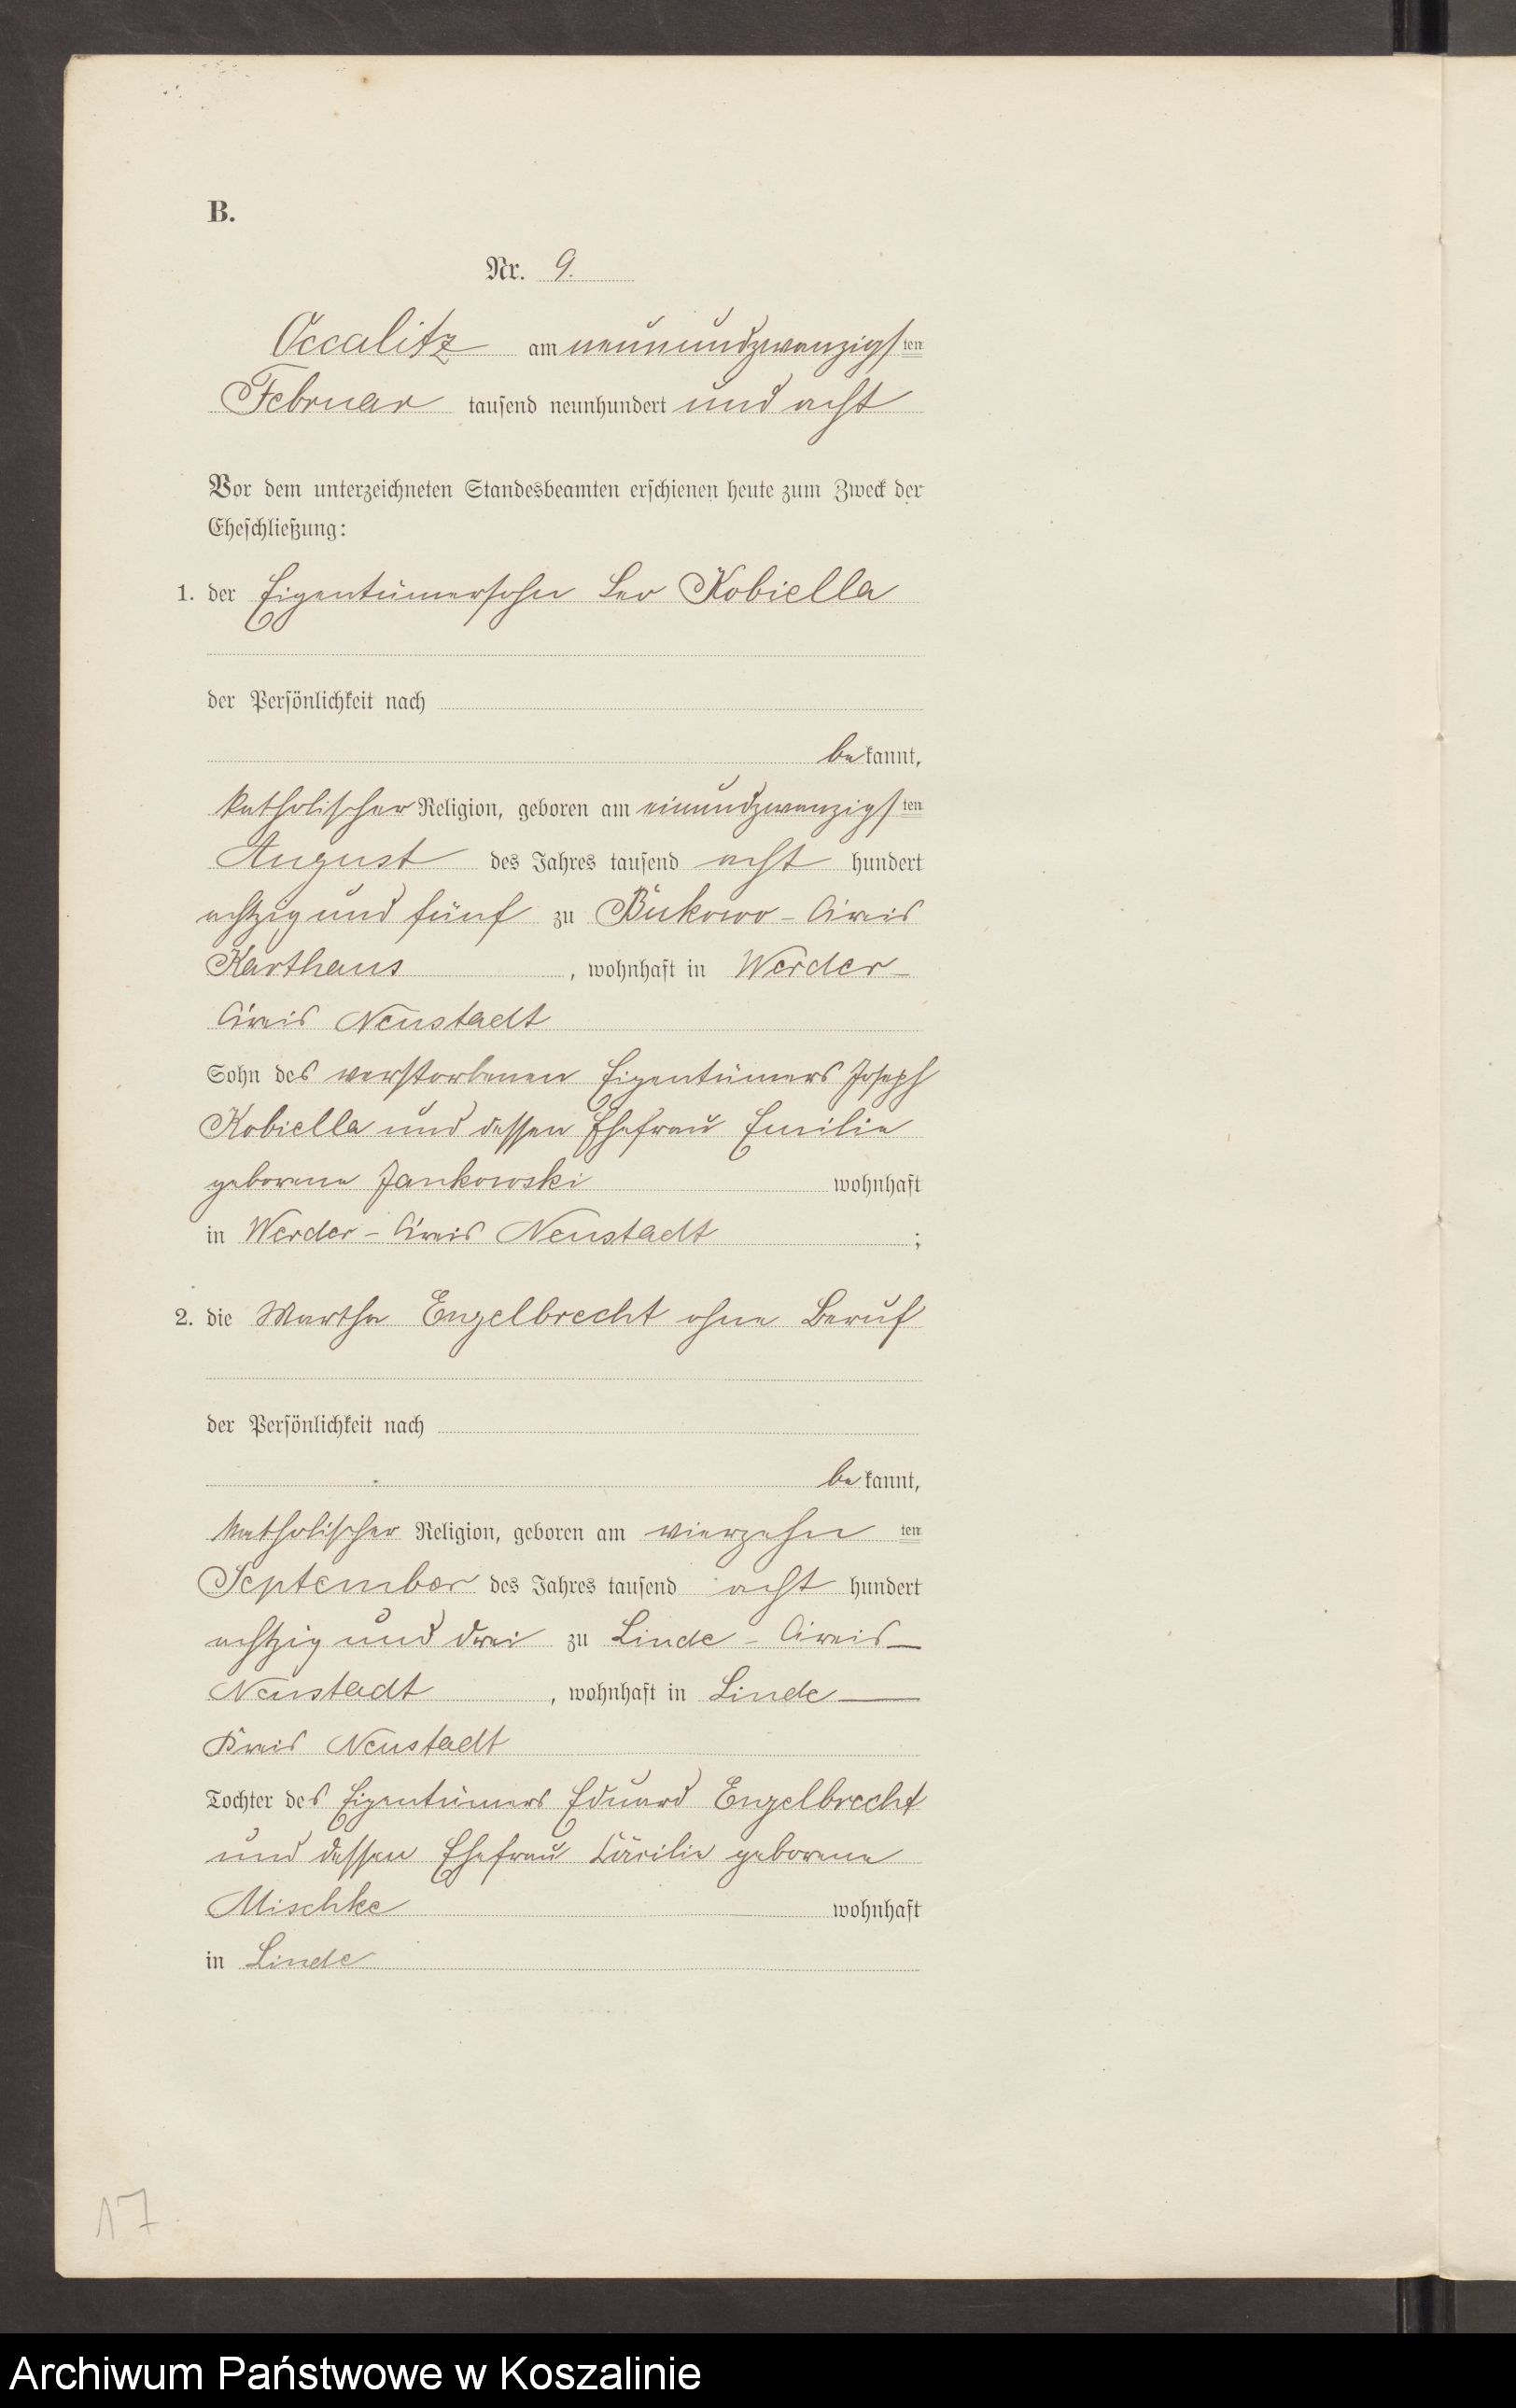 B.
Nr. 9.
Occalitz am neunundzwanzigsten
Februar tausend neunhundert und acht
Vor dem unterzeichneten Standesbeamten erschienen heute zum Zweck der
Eheschließung:
1. der Eigentümersohn Leo Kobiella
der Persönlichkeit nach
bekannt,
katholischer Religion, geboren am einundzwanzigsten
August des Jahres tausend acht hundert
achtzig und fünf zu Bukowo - Kreis
Karthaus, wohnhaft in Werder -
Kreis Neustadt
Sohn des verstorbenen Eigentümers Joseph
Kobiella und dessen Ehefrau Emilie
geborene Jankowski wohnhaft
in Werder - Kreis Neustadt ;
2. die Martha Engelbrecht ohne Beruf
der Persönlichkeit nach
bekannt,
katholischer Religion, geboren am vierzehn ten
September des Jahres tausend acht hundert
achtzig und drei zu Linde - Kreis
Neustadt, wohnhaft in Linde
Kreis Neustadt
Tochter des Eigentümers Eduard Engelbrecht
und dessen Ehefrau Cäcilie geborene
Mischke wohnhaft
in Linde
17
Archiwum Państwowe w Koszalinie